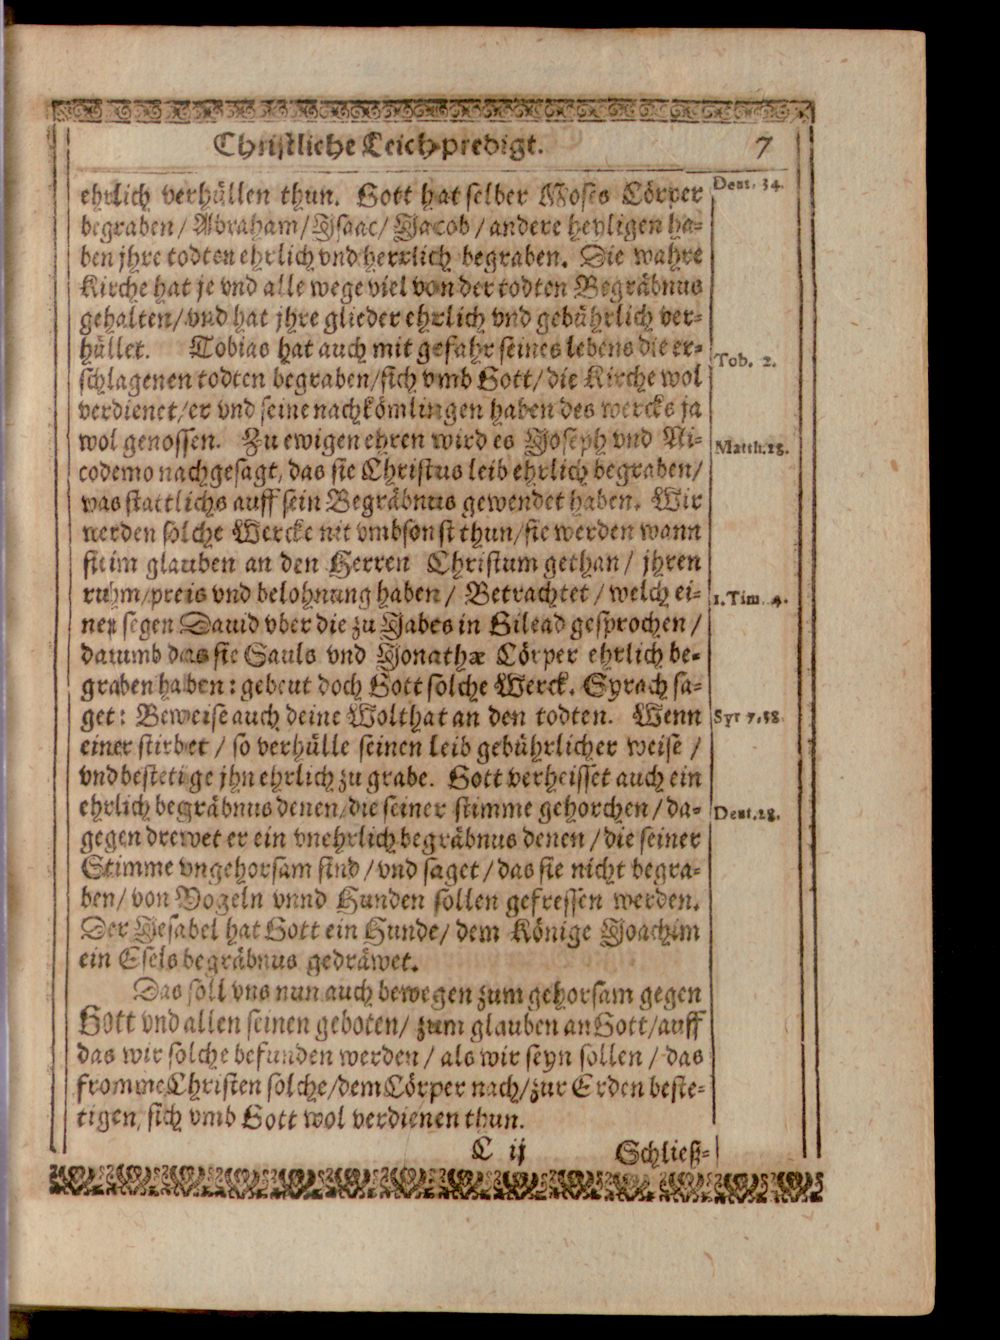 Christliche Leichpredigt. 7
ehrlich verhüllen thun. Gott hat selber Moses Cörper
Deut. 34.
begraben / Abraham / Jsaac / Jacob / andere heyligen ha-
ben jhre todten ehrlich vnd herrlich begraben. Die wahre
Kirche hat je vnd alle wege viel von der todten Begräbnus
gehalten / vnd hat jhre glieder ehrlich vnd gebührlich ver-
hüllet. Tobias hat auch mit gefahr seines lebens die er-
Tob. 2.
schlagenen todten begraben / sich vmb Gott / die Kirche wol
verdienet / er vnd seine nachkömlingen haben des wercks ja
wol genossen. Zu ewigen ehren wird es Joseph vnd Ni-
Matth. 28.
codemo nachgesagt, das sie Christus leib ehrlich begraben /
was stattlichs auff sein Begräbnus gewendet haben. Wir
werden solche Wercke nit vmbsonst thun / sie werden wann
sie im glauben an den Herren Christum gethan / jhren
ruhm / preis vnd belohnung haben / Betrachtet / welch ei-
1. Tim. 4.
nen segen Dauid vber die zu Jabes in Gilead gesprochen /
darumb das sie Sauls vnd Jonathæ Cörper ehrlich be-
graben haben: gebeut doch Gott solche Werck. Syrach sa-
get: Beweise auch deine Wolthat an den todten. Wenn
Syr 7. 38
einer stirbet / so verhülle seinen leib gebührlicher weise /
vnd bestetige jhn ehrlich zu grabe. Gott verheisset auch ein
ehrlich begräbnus denen / die seiner stimme gehorchen / da-
Deut. 28.
gegen drewet er ein vnehrlich begräbnus denen / die seiner
Stimme vngehorsam sind / vnd saget / das sie nicht begra-
ben / von Vogeln vnnd Hunden sollen gefressen werden.
Der Jesabel hat Gott ein Hunde / dem Könige Joachim
ein Esels begräbnus gedräwet.
Das soll vns nun auch bewegen zum gehorsam gegen
Gott vnd allen seinen geboten / zum glauben an Gott / auff
das wir solche befunden werden / als wir seyn sollen / das
fromme Christen solche / dem Cörper nach / zur Erden beste-
tigen, sich vmb Gott wol verdienen thun.
C ij Schließ-